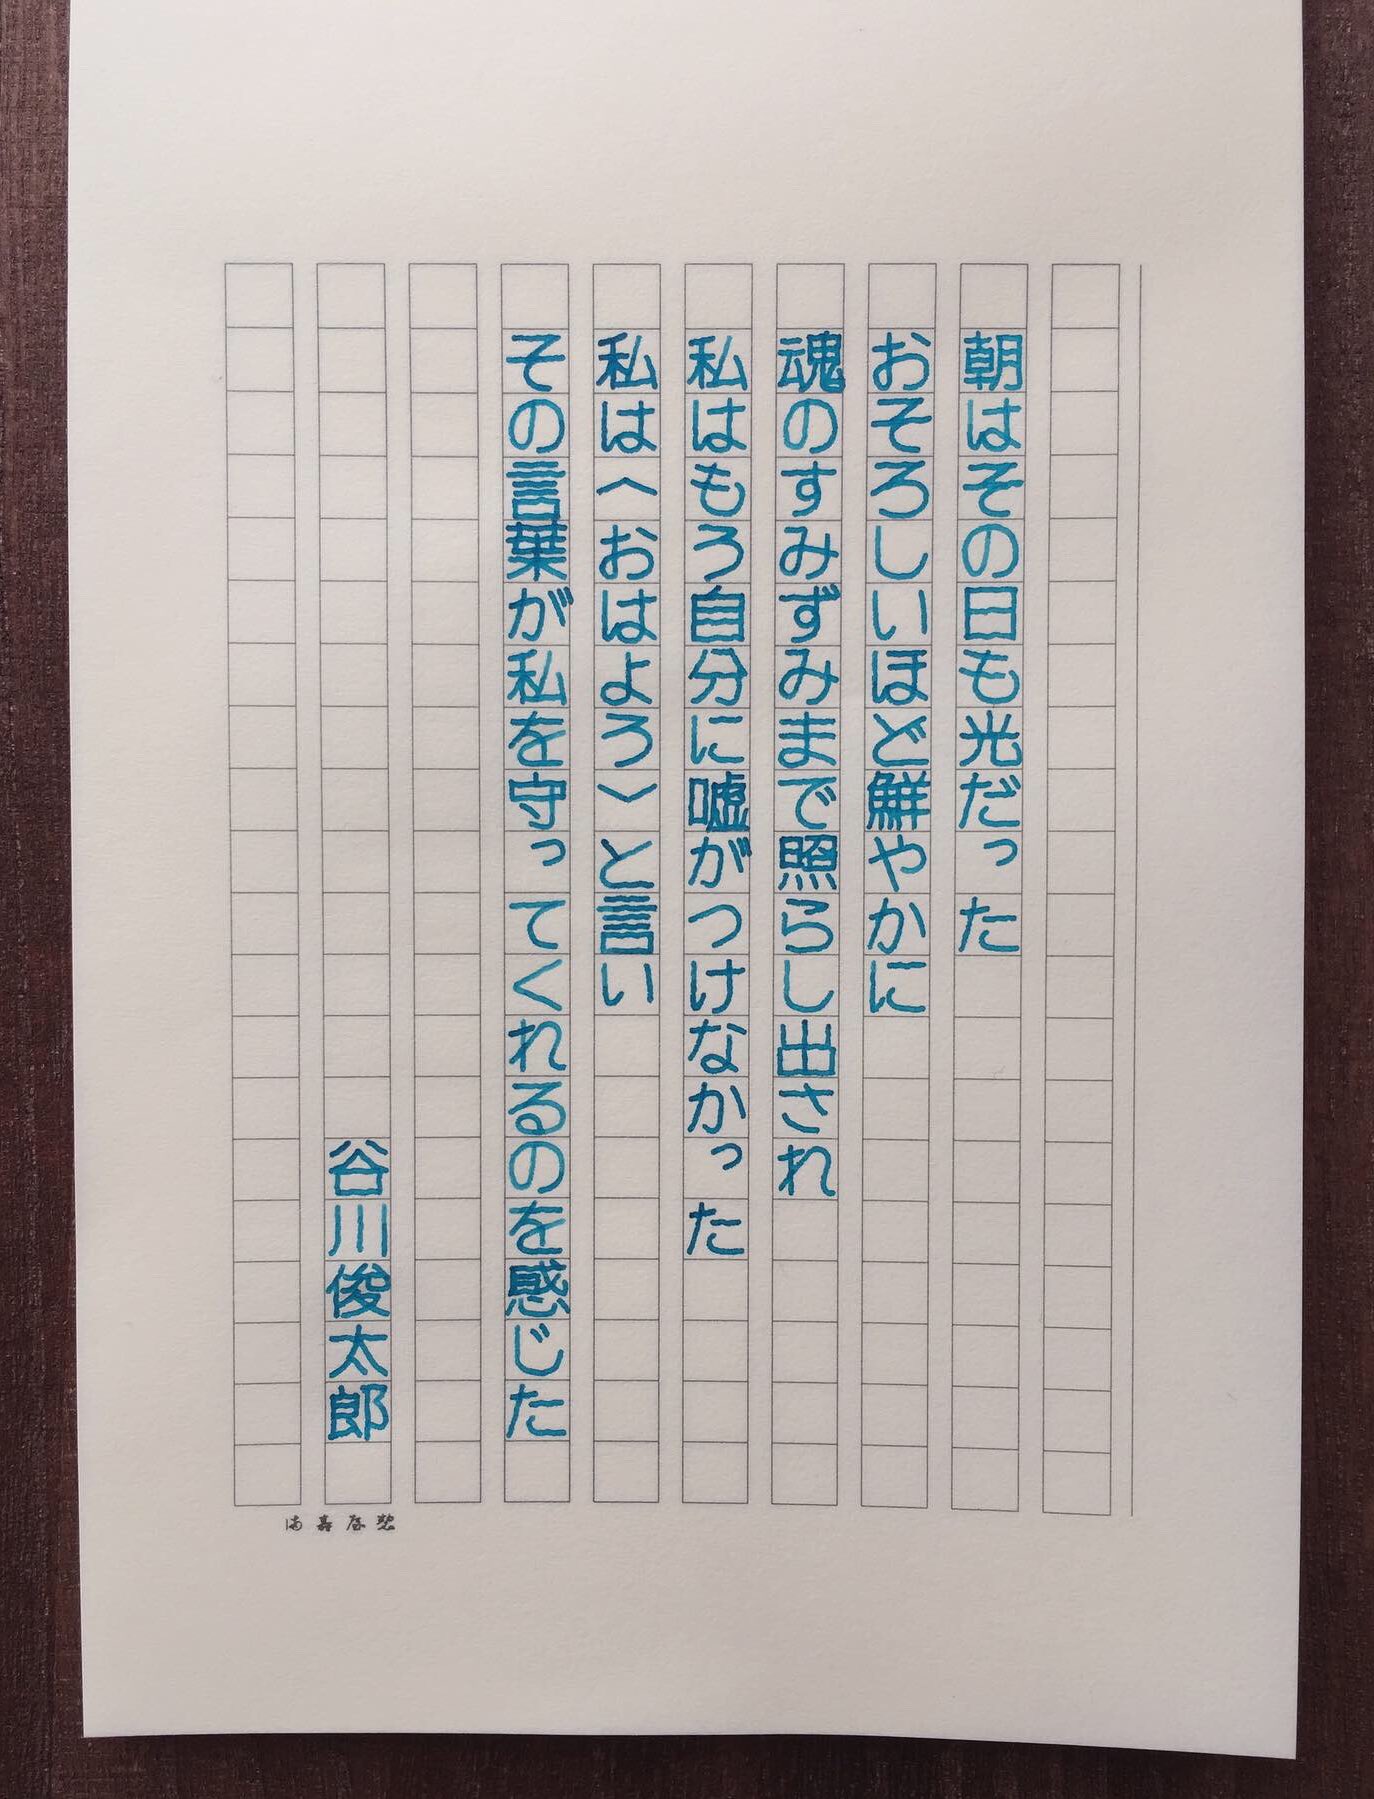 朝はその日も光だった
おそろしいほど鮮やかに
魂のすみずみまで照らし出され
私はもう自分に嘘がつけなかった
私は〈おはよう〉と言い
その言葉が私を守ってくれるのを感じた
谷川俊太郎